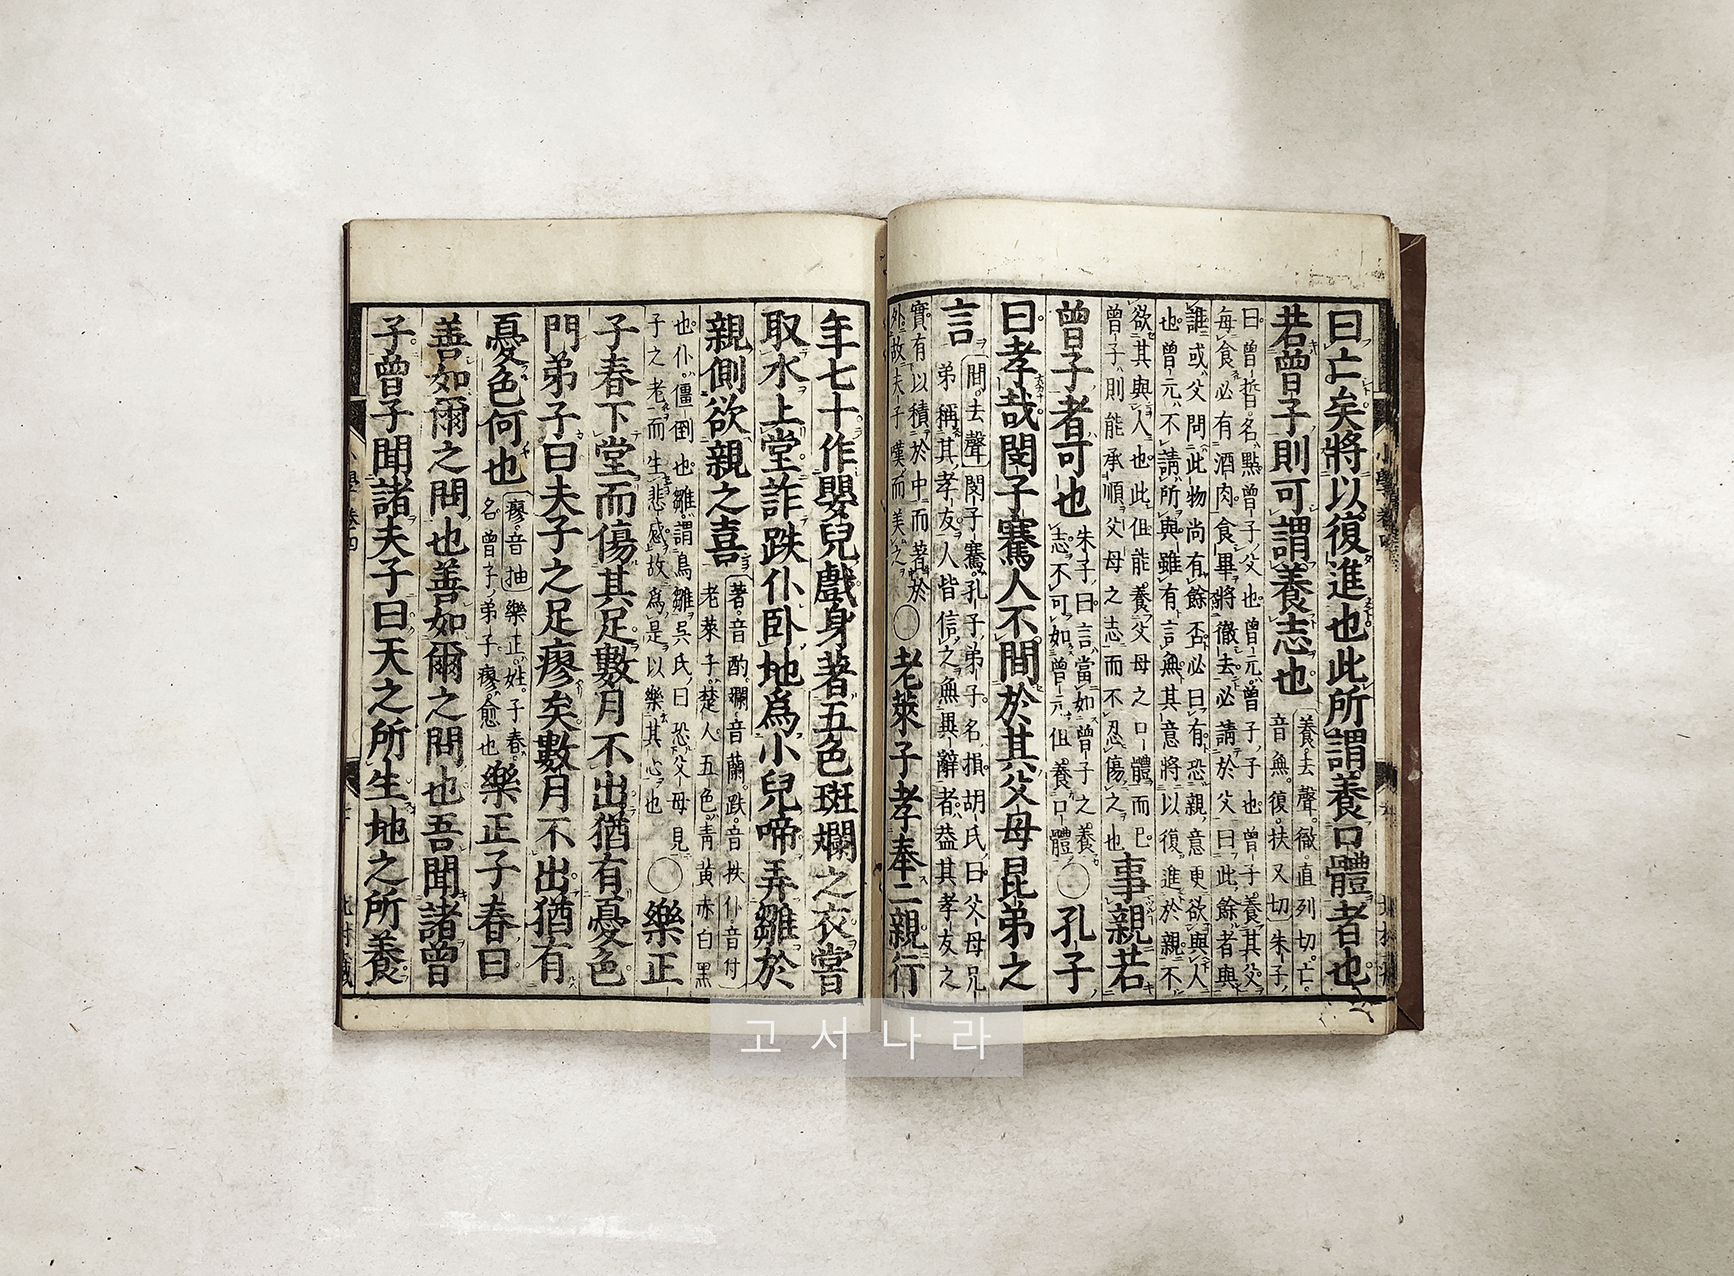 小學 卷四
曰亡矣將以復進也此所謂養口體者也
若曾子則可謂養志也
養去聲徹直列切亡
音無復扶又切朱子
曰曾晢名點曾子父也曾元曾子子也曾子養其父
每食必有酒肉食畢將徹去必請於父曰此餘者與
誰或父問此物尚有餘否必曰有恐親意更欲與人
也曾元不請所與雖有言無其意將以復進於親不
欲其與人也此但能養父母之口體而已
曾子則能承順父母之志而不忍傷之也
事親若
曾子者可也
朱子曰言當如曾子之養
志不可如曾元但養口體
○孔子
曰孝哉閔子騫人不間於其父母昆弟之
言
間去聲閔子騫孔子弟子名損胡氏曰父母兄
弟稱其孝友人皆信之無異辭者益其孝友之
實有以積於中而著於
外故夫子嘆而美之
○老萊子孝奉二親行
年七十作嬰兒戲身著五色斑斕之衣嘗
取水上堂詐跌仆臥地爲小兒啼弄雛於
親側欲親之喜
著音酌斕音蘭跌音抶仆音付
老萊子楚人五色靑黃赤白黑
也仆僵倒也雛謂鳥雛吳氏曰恐父母見
子之老而生悲感故爲是以樂其心也
○樂正
子春下堂而傷其足數月不出猶有憂色
門弟子曰夫子之足瘳矣數月不出猶有
憂色何也
瘳音抽樂正姓子春
名曾子弟子瘳愈也
樂正子春曰
善如爾之問也善如爾之問也吾聞諸曾
子曾子聞諸夫子曰天之所生地之所養
學 卷四
고서나라